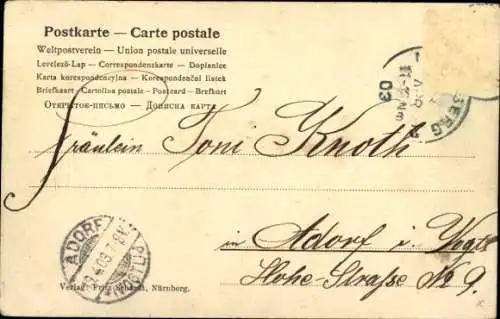 Postkarte — Carte postale
Weltpostverein — Union postale universelle
Levelező-Lap — Correspondenzkarte — Dopisnice
Karta korespondencyjna — Korespondenční lístek
Briefkaart — Cartolina postale — Postcard — Brefkort
Открытое-письмо — Дописна карта
Fräulein Toni Knoth
in Adorf i. Vogtl.
Hohe-Straße № 9.
ADORF
BERG
03
Verlag: Fritz Nürnberg.